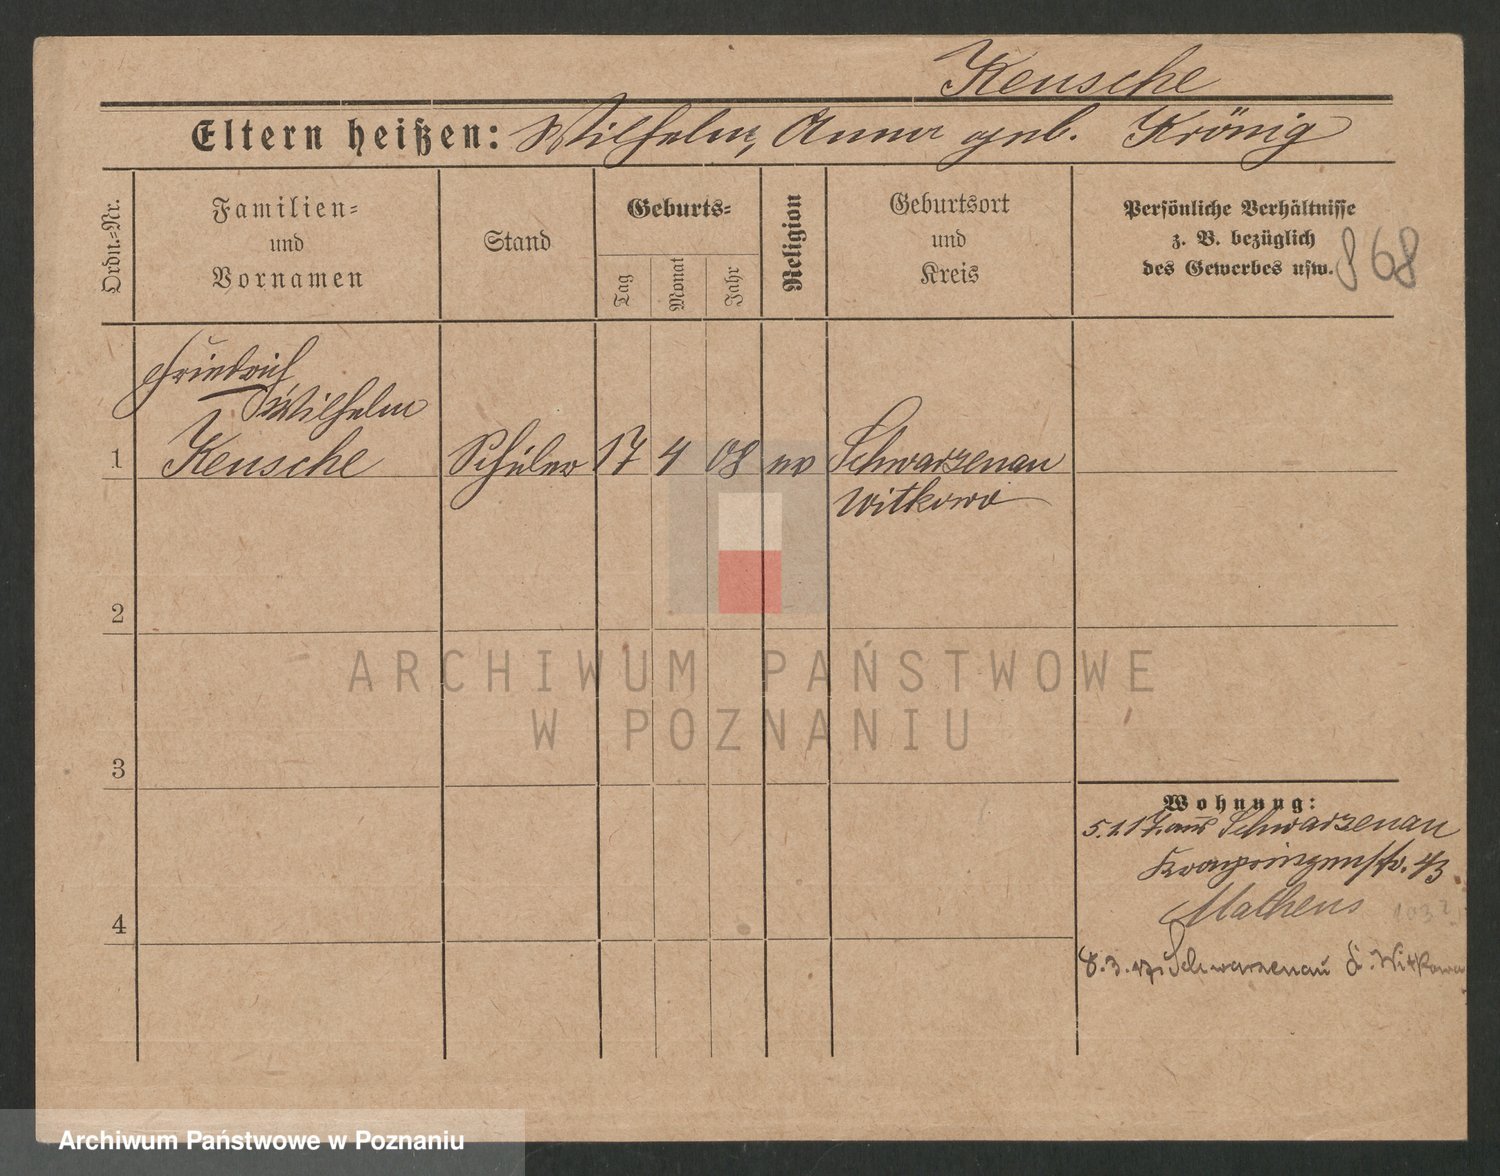 Keusche
Eltern heißen: Wilhelm, Anna geb. Krönig
Ordn.-Nr.
Familien-
und
Vornamen
Stand
Geburts-
Tag
Monat
Jahr
Religion
Geburtsort
und
Kreis
Persönliche Verhältnisse
z. B. bezüglich
des Gewerbes usw.
868
Friedrich
Wilhelm
1 Keusche Schüler 17 4 08 ev Schwarzenau
Witkowo
2
ARCHIWUM PAŃSTWOWE
W POZNANIU
3
4
Wohnung:
5.2.17. aus Schwarzenau
Kronprinzenstr. 43
Matheus
8.3.17. Schwarzenau b. Witkowo
Archiwum Państwowe w Poznaniu